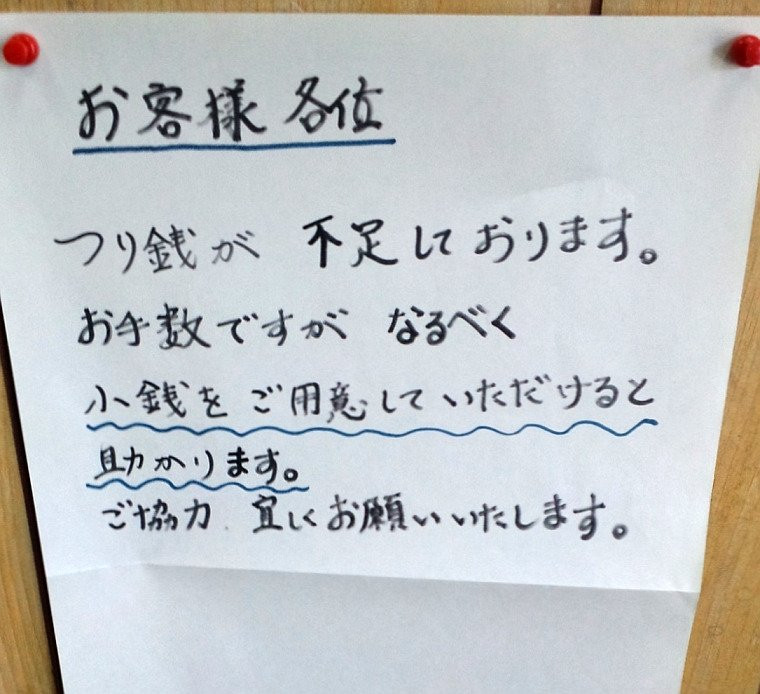 お客様 各位
つり銭が 不足しております。
お手数ですが なるべく
小銭を ご用意していただけると
助かります。
ご協力 宜しくお願いいたします。